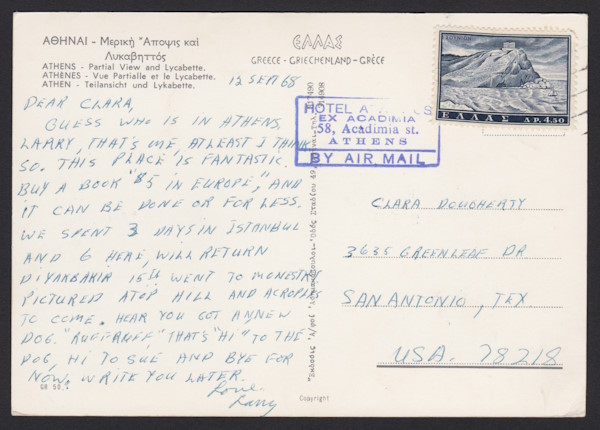 ΑΘΗΝΑΙ - Μερικὴ Ἄποψις καὶ
Λυκαβηττός
ATHENS - Partial View and Lycabette.
ATHÈNES - Vue Partialle et Lycabette.
ATHEN - Teilansicht und Lykabette.
ΕΛΛΑΣ
GREECE - GRIECHENLAND - GRÈCE
12 SEPT 68
DEAR CLARA,
GUESS WHO IS IN ATHENS,
LARRY, THAT'S ME, AT LEAST I THINK
SO. THIS PLACE IS FANTASTIC.
BUY A BOOK "$5 IN EUROPE," AND
IT CAN BE DONE OR FOR LESS.
WE SPENT 3 DAYS IN ISTANBUL
AND 6 HERE, WILL RETURN
DIYARBAKIR 15th WENT TO MONESTRY
PICTURED ATOP HILL AND ACROPLIS
TO COME. HEAR YOU GOT A NEW
DOG. "RUFF RUFF," THAT'S "HI" TO THE
DOG, HI TO SUE AND BYE FOR
NOW. WRITE YOU LATER.
Love
Larry
GR 50
Copyright
HOTEL
EX ACADIMIA
58, Acadimia st.
ATHENS
BY AIR MAIL
ΕΛΛΑΣ ΔΡ. 4.50
CLARA DOUGHERTY
3635 GREENLEAF DR
SAN ANTONIO, TEX
USA. 78218